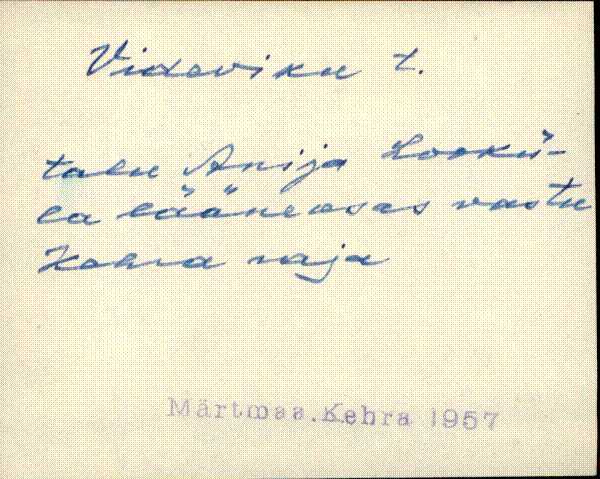 Videviku t.
talu Anija Lookü-
la lääneosas vastu
Kehra raja
Märtmaa.Kehra 1957